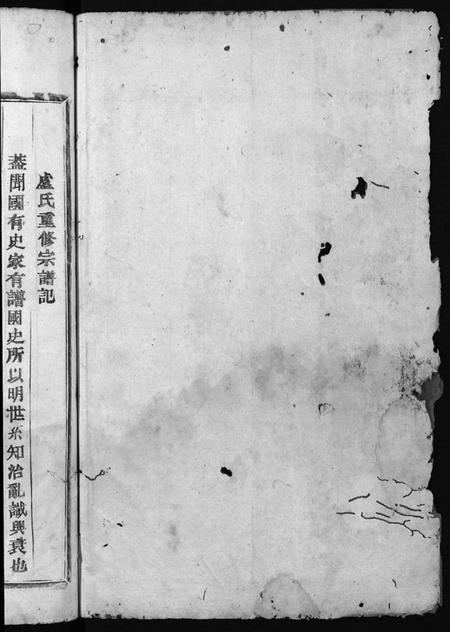 盧氏重修宗譜記
蓋聞國有史家有譜國史所以明世系知治亂識興衰也